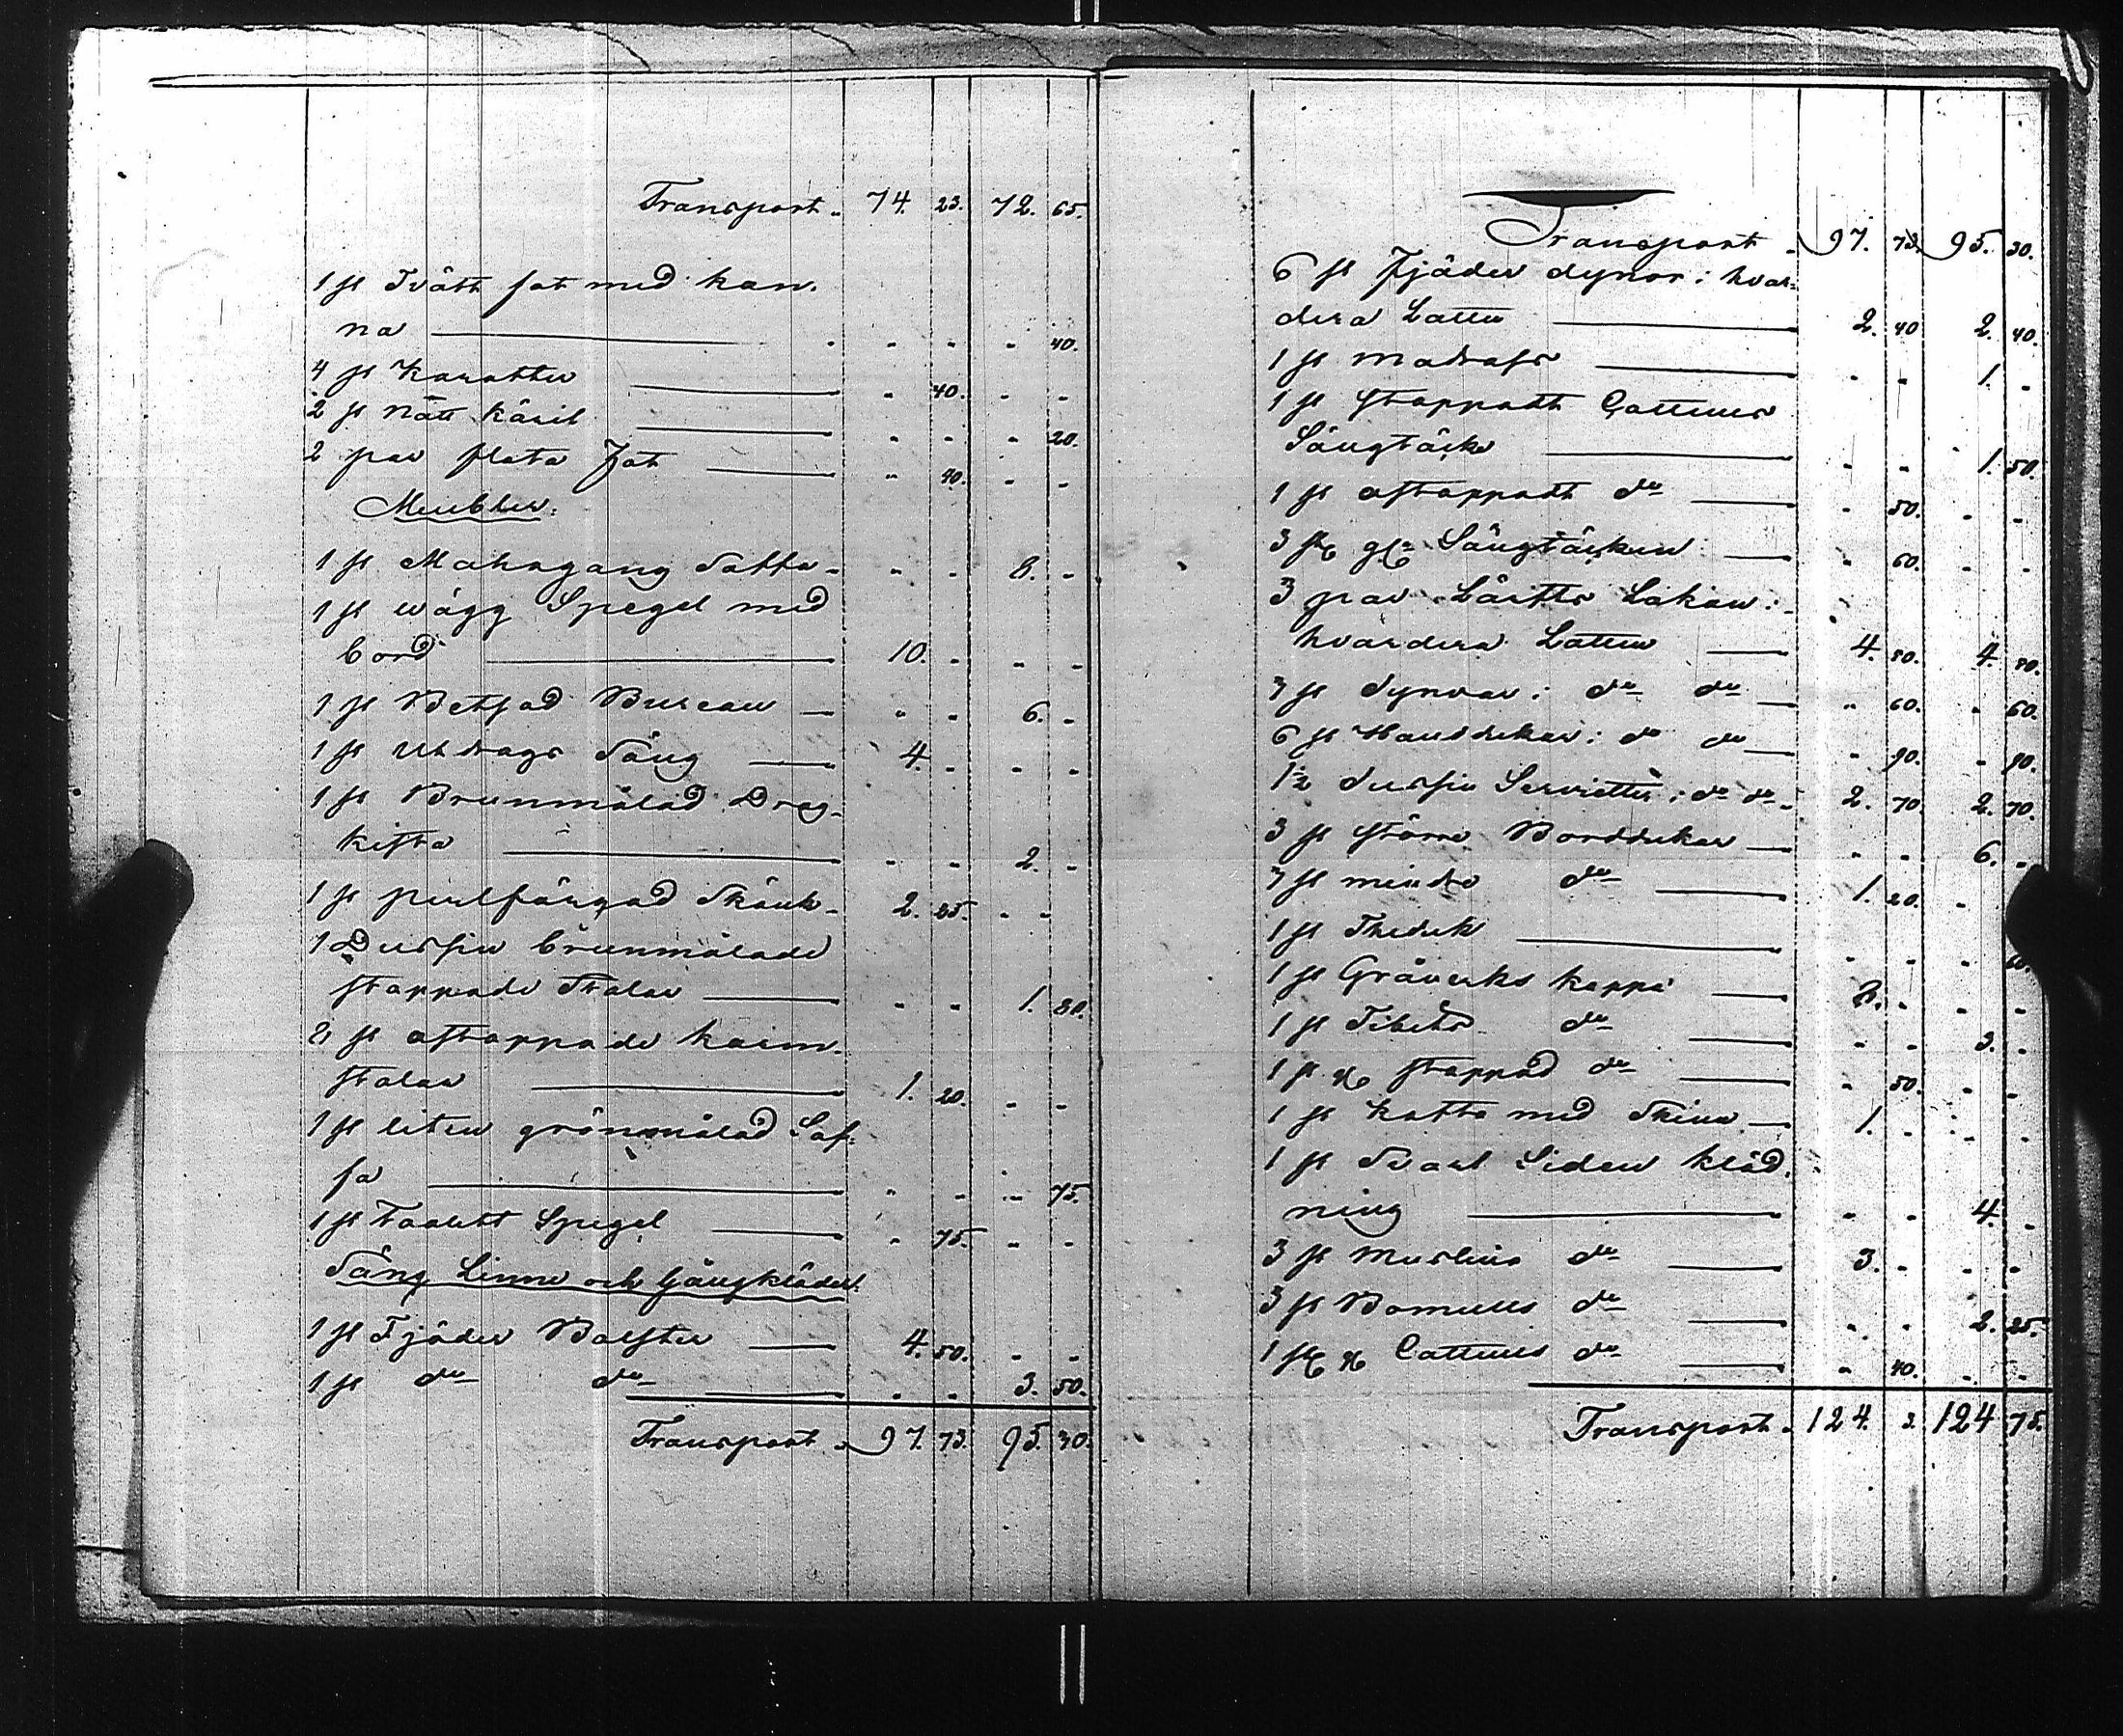 Transport.. 74. 23. 72. 65.
1 st Tvätt fat med kan-
na - - - 40.
4 st Karotter - 40. - -
2 st Nätt Käril - - - 20.
2 par flata Fat - 40. - -
Meubler:
1 st Mahogany Soffa - - - 8. -
1 st Wägg Spegel med
bord 10. - - -
1 st Betsad Bureau - - 6. -
1 st Utdrags Säng 4. - - -
1 st Brunmålad Drag-
kista - - 2. -
1 st perlfärgad Skänk - 2. 25. - -
1 Dussin brunmålade
stoppade Stolar - - 1. 80.
2 st ostoppade karm-
stolar 1. 20. - -
1 st liten grönmålad Sof-
fa - - - 75.
1 st Toalett Spegel - 75. - -
Säng Linne och Gångkläder:
1 st Fjäder Bolster 4. 50. - -
1 st do do - - 3. 50.
Transport. 97. 73. 95. 30.
Transport - 97. 73. 95. 30.
6 st Fjäder dynor: hvar-
dera Lotten 2. 40 2. 40.
1 st Madrass - - 1. -
1 st Stoppadt Cattuns
Sängtäcke - - 1. 50.
1 st ostoppadt do - 50. - -
3 st gl. Sängtäcken - 60. - -
3 par Lärfts Lakan:
hvardera Lotten 4. 80. 4. 80.
7 st Dynvar: do do - 60. - 60.
6 st Handdukar: do do - 90. - 90.
1½ Dussin Servietter: do do - 2. 70 2. 70.
3 st större Borddukar - - 6. -
7 st mindre do 1. 20. -
1 st Theduk - - - 60.
1 st Gråverks kappa 8. - - -
1 st Tibets do - - 3. -
1 st stoppad do - 50. - -
1 st kofta med Skinn 1. - - -
1 st Svart Siden kläd-
ning - - 4. -
3 st Muslins do 3. - - -
3 st Bomulls do - - 2. 25.
1 st Cattuns do - 40. - -
Transport. 124. 3. 124 75.